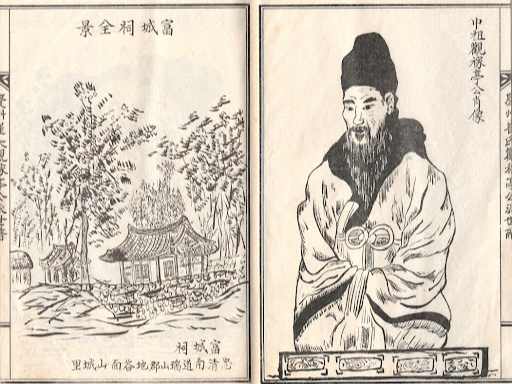 中祖觀稼亭公肖像
富城祠全景
富城祠
忠清南道瑞山郡地谷面山城里